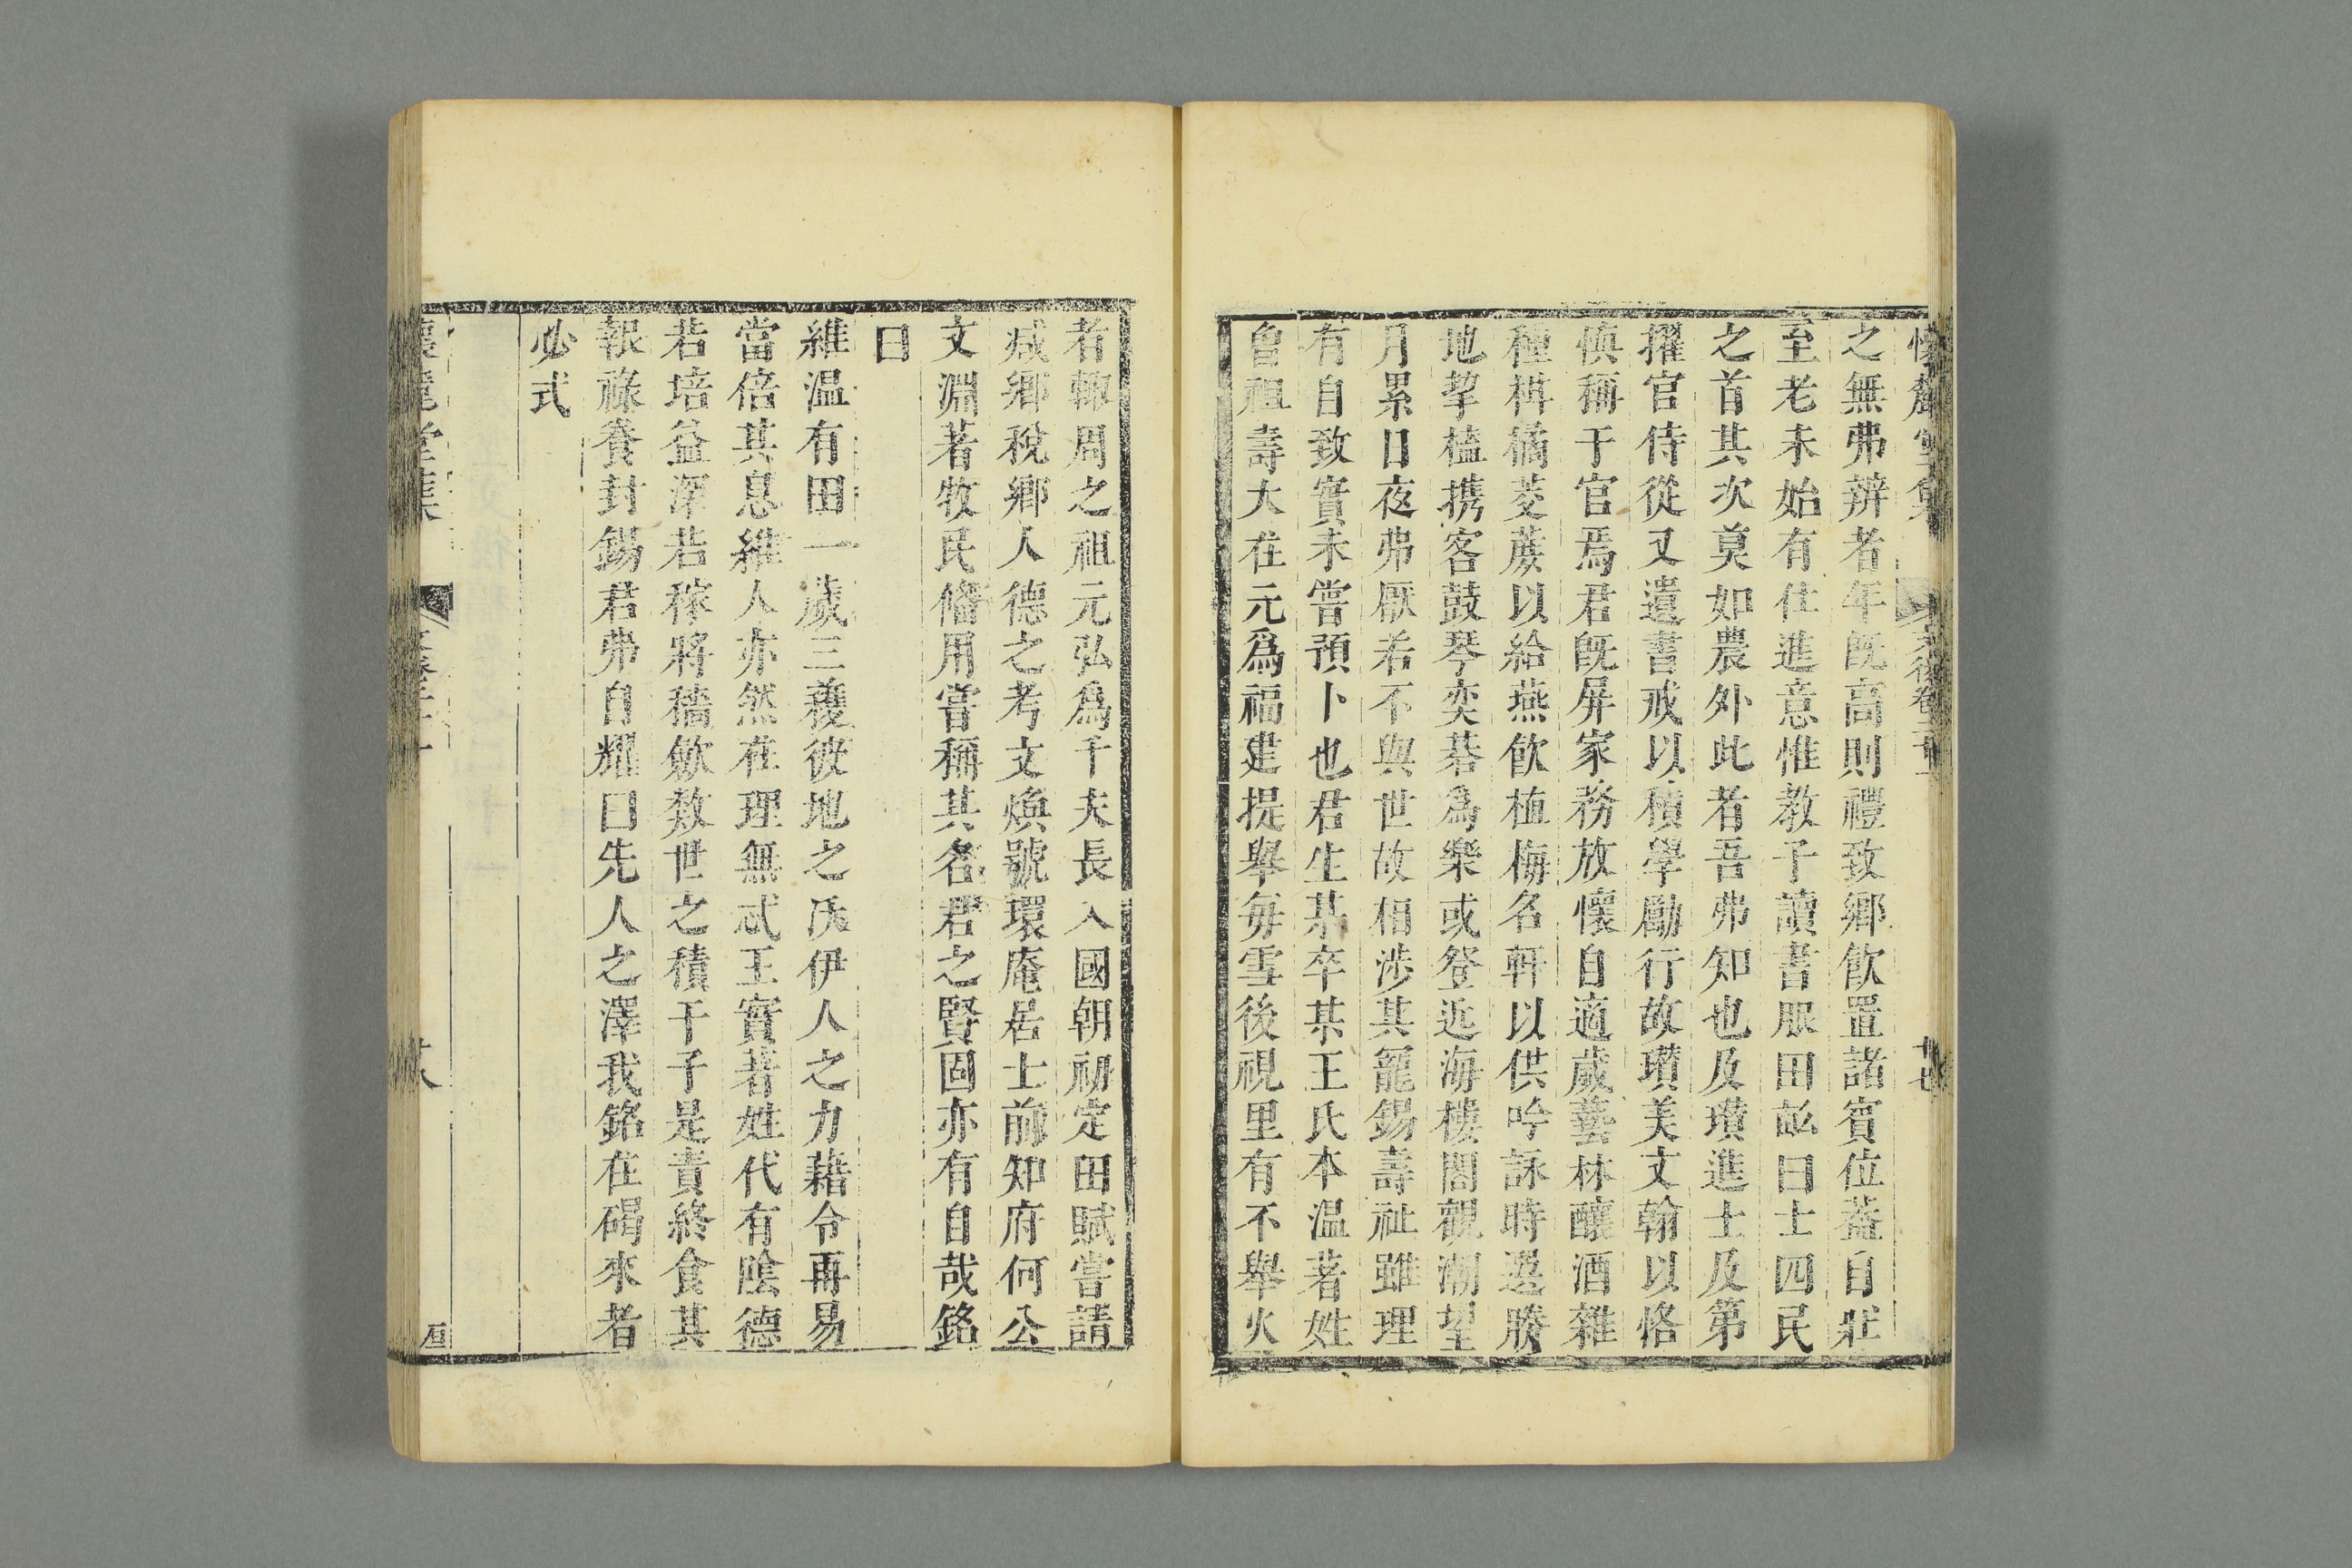 懷麓堂集 文後卷二十 廿七
之無弗辨者年旣高則禮致鄉飮置諸賓位葢自壯
至老未始有仕進意惟教子讀書服田畝曰士四民
之首其次莫如農外此者吾弗知也及瓚進士及第
擢官侍從又遺書戒以積學勵行故瓚美文翰以恪
愼稱于官焉君旣屏家務放懷自適歲藝林釀酒雜
種楫橘菱蔗以給燕飮植梅名軒以供吟詠時選勝
地挈榼携客鼓琴奕棊爲樂或登近海樓閣觀潮望
月累日夜弗厭若不與世故相涉其寵錫壽祉雖理
有自致實未嘗預卜也君生某卒某王氏本温著姓
曾祖壽大在元爲福建提舉毎雪後視里有不舉火
者輙周之祖元弘爲千夫長入國朝初定田賦嘗請
减鄉稅鄉人德之考文煥號環庵居士前知府何公
文淵著牧民偹用嘗稱其名君之賢固亦有自哉銘
曰
維温有田一歲三穫彼地之沃伊人之力藉令再易
當倍其息維人亦然在理無忒王實著姓代有隂德
若培益深若稼將穡斂數世之積于子是責終食其
報祿養封錫君弗自耀曰先人之澤我銘在碣來者
必式
懷麓堂集 廿八